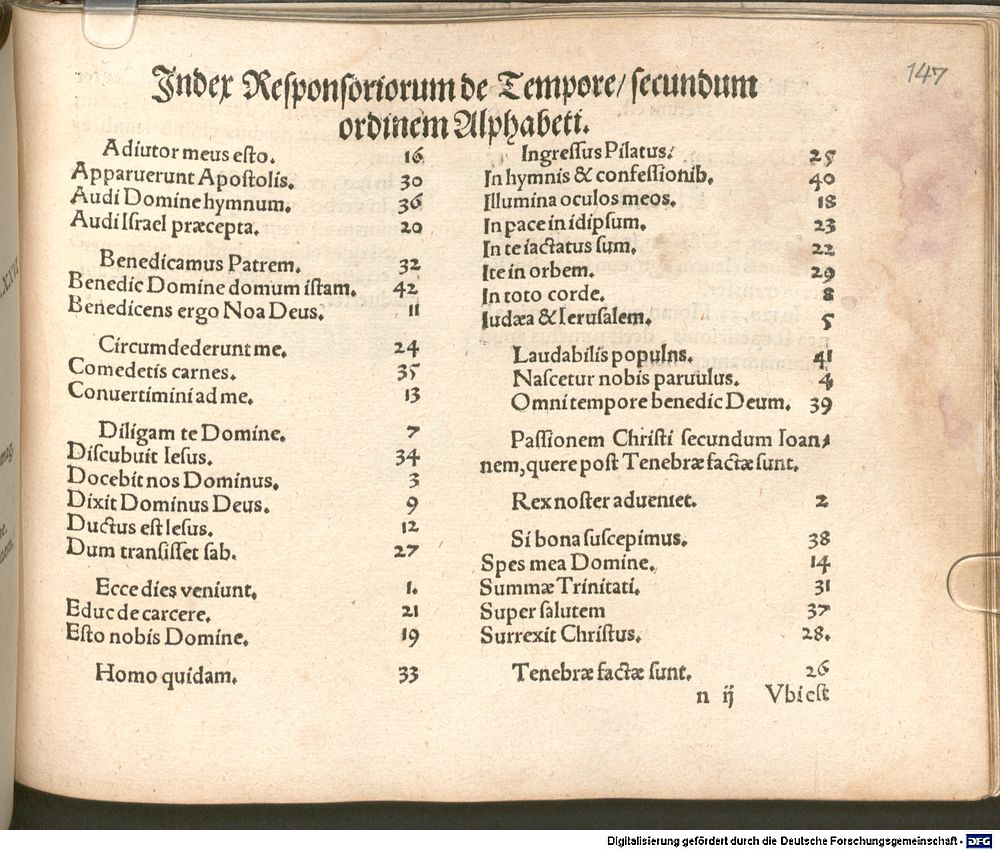 147
Index Responsoriorum de Tempore/ secundum
ordinem Alphabeti.
Adiutor meus esto. 16
Apparuerunt Apostolis. 30
Audi Domine hymnum. 36
Audi Israel præcepta. 20
Benedicamus Patrem. 32
Benedic Domine domum istam. 42
Benedicens ergo Noa Deus. 11
Circumdederunt me. 24
Comedetis carnes. 35
Conuertimini ad me. 13
Diligam te Domine. 7
Discubuit Iesus. 34
Docebit nos Dominus. 3
Dixit Dominus Deus. 9
Ductus est Iesus. 12
Dum transisset sab. 27
Ecce dies veniunt. 1.
Educ de carcere. 21
Esto nobis Domine. 19
Homo quidam. 33
Ingressus Pilatus. 25
In hymnis & confessionib. 40
Illumina oculos meos. 18
In pace in idipsum. 23
In te iactatus sum. 22
Ite in orbem. 29
In toto corde. 8
Iudæa & Ierusalem. 5
Laudabilis populns. 41
Nascetur nobis paruulus. 4
Omni tempore benedic Deum. 39
Passionem Christi secundum Ioan-
nem, quere post Tenebræ factæ sunt.
Rex noster adueniet. 2
Si bona suscepimus. 38
Spes mea Domine. 14
Summæ Trinitati. 31
Super salutem 37
Surrexit Christus. 28.
Tenebræ factæ sunt. 26
n ij Vbi est
Digitalisierung gefördert durch die Deutsche Forschungsgemeinschaft - DFG